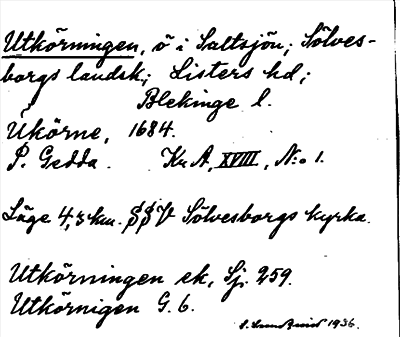 Utkörningen, ö i Saltsjön; Sölves-
borgs landsk; Listers hd;
Blekinge l.
Ukörne, 1684.
P. Gedda. Kr A, XVIII, N:o 1.
Läge 4,3 km. SSV Sölvesborgs kyrka.
Utkörningen ek. Sj. 259.
Utkörnigen G. 6.
1936.